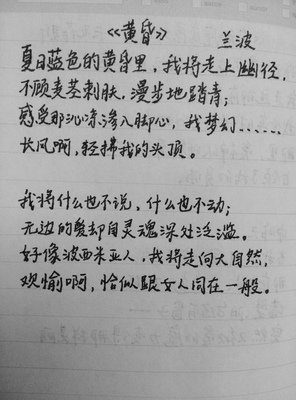 《黄昏》 兰波
夏日蓝色的黄昏里，我将走上幽径，
不顾麦茎刺肤，漫步地踏青；
感受那沁凉渗入脚心，我梦幻……
长风啊，轻拂我的头顶。
我将什么也不说，什么也不动；
无边的爱却自灵魂深处泛滥。
好像波西米亚人，我将走向大自然，
欢愉啊，恰似跟女人同在一般。